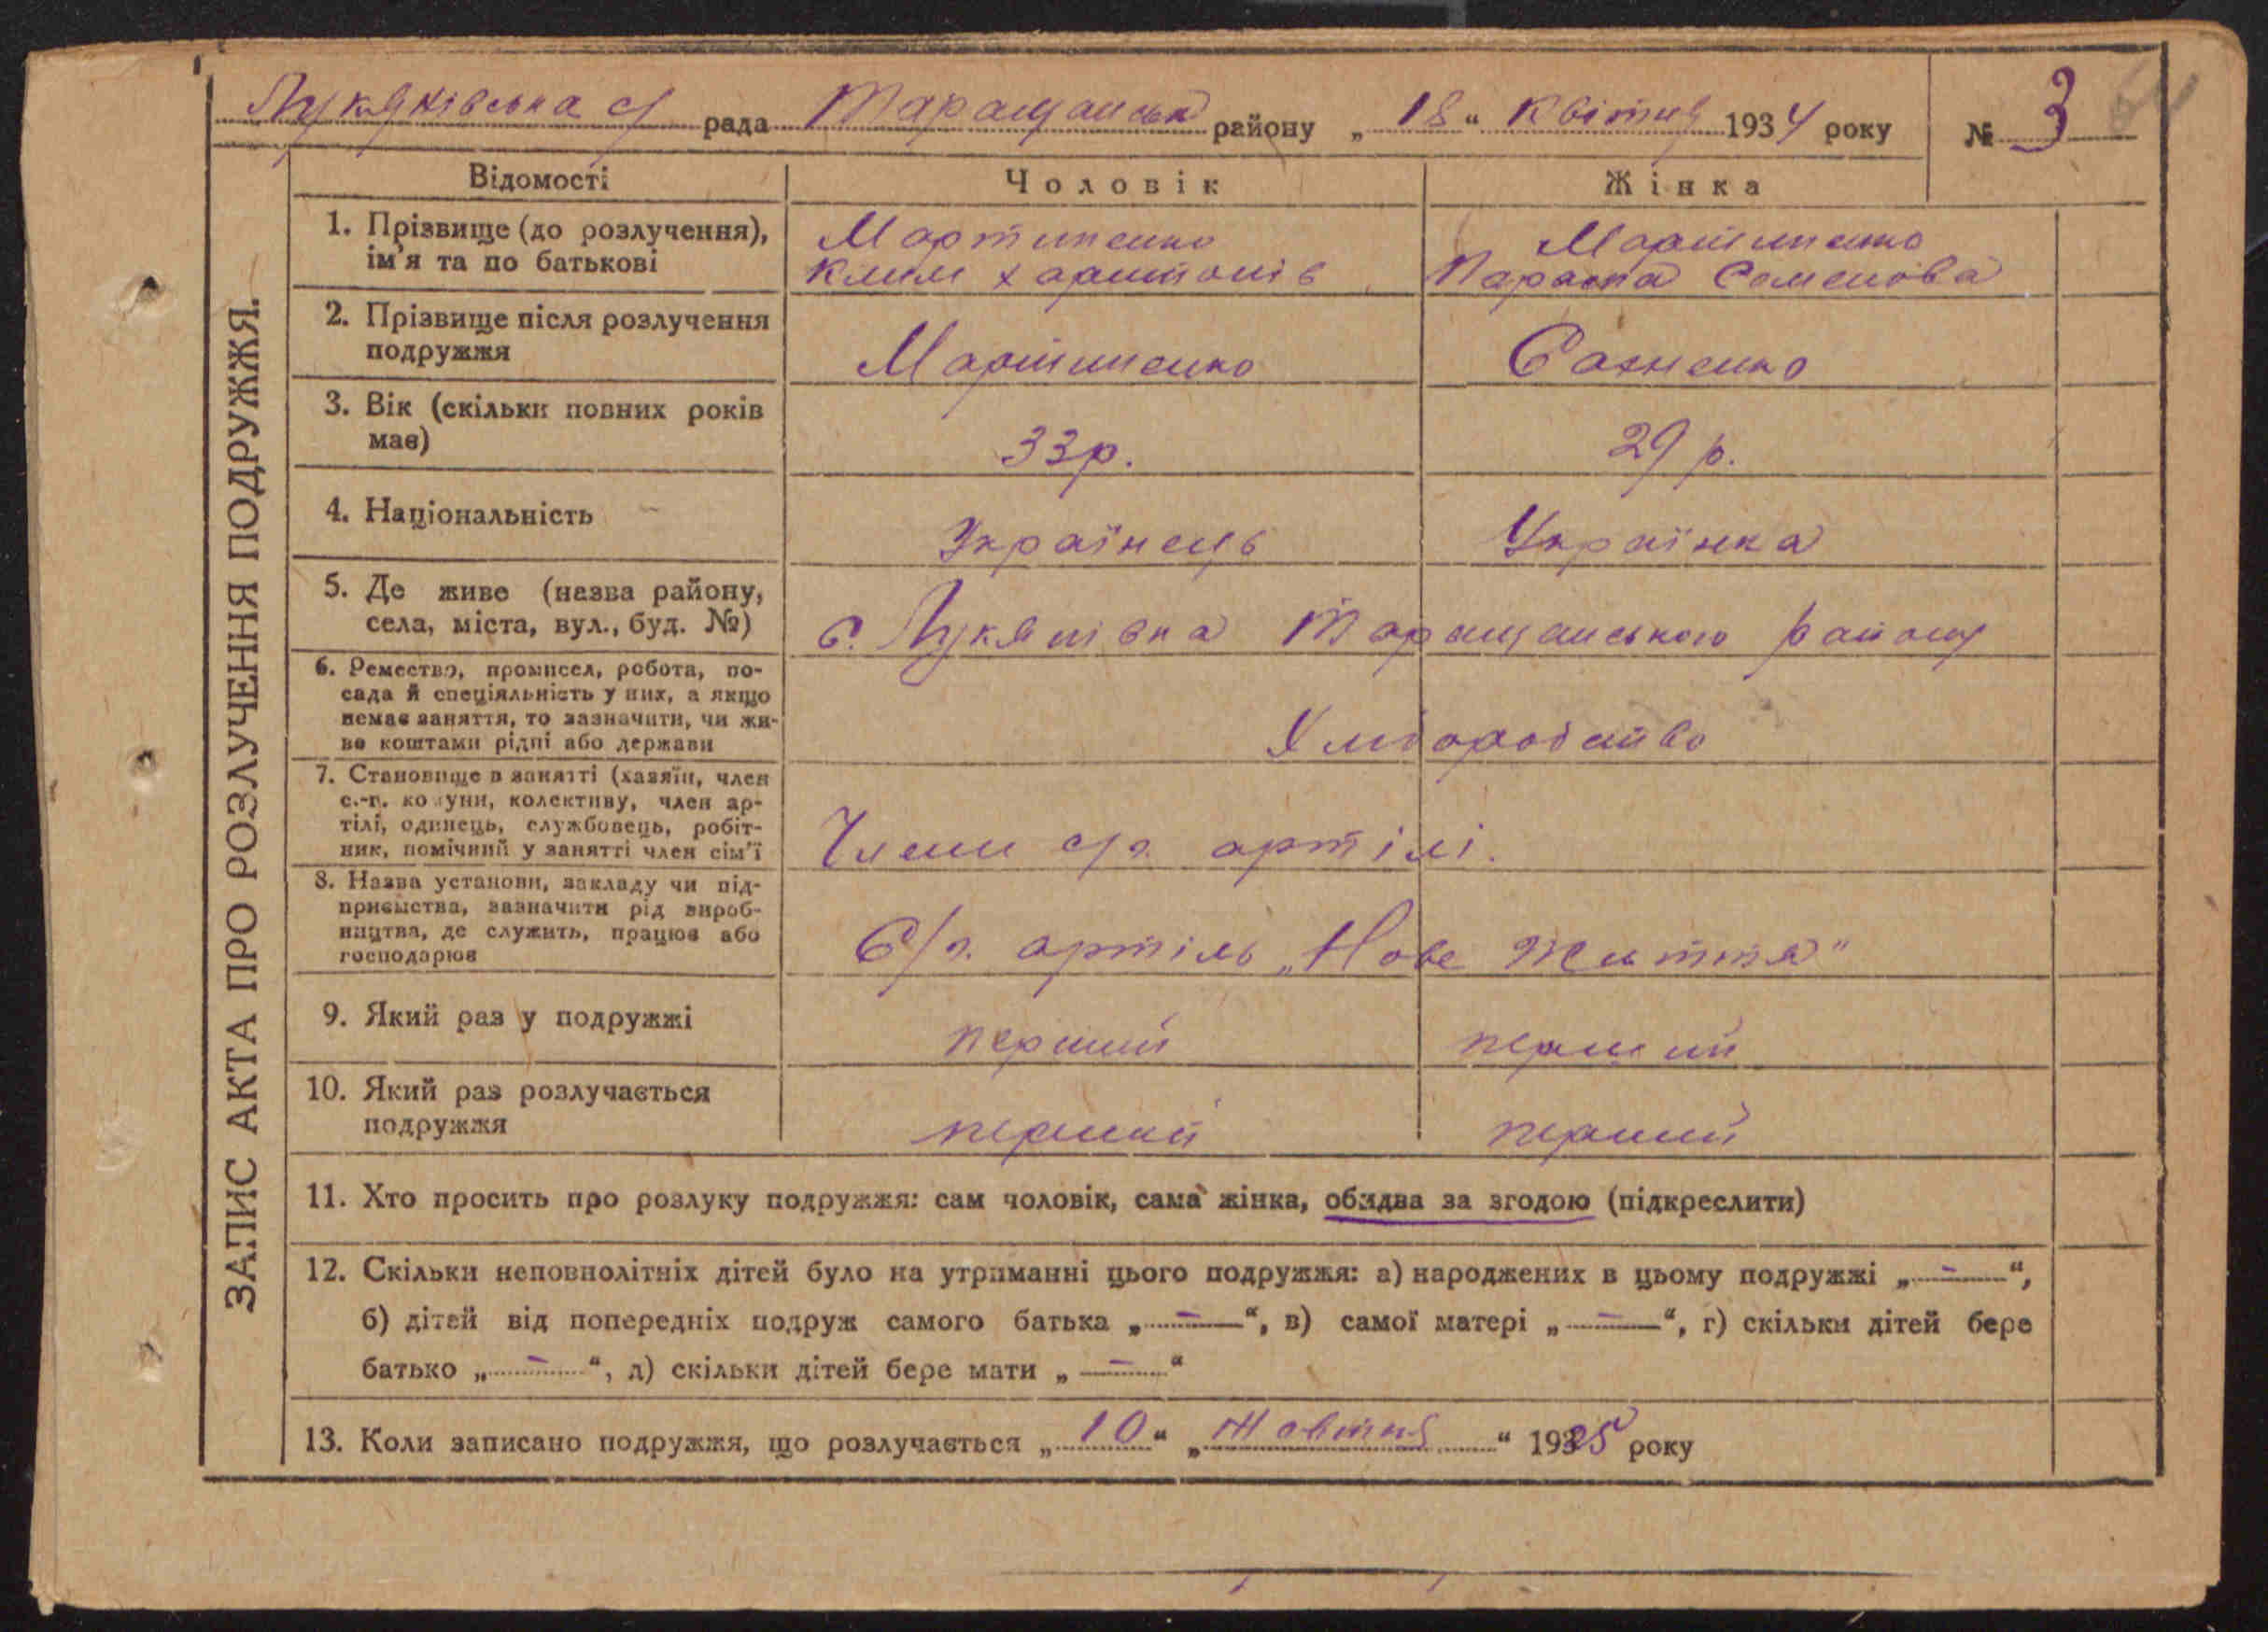 Лукянівська с/ рада Таращанськ району „ 18 “ Квітня 1934 року № 3
Відомості Чоловік Жінка
1. Прізвище (до розлучення), ім'я та по батькові
Мартиненко Клим Харитонів
Мартиненко Параска Семенова
2. Прізвище після розлучення подружжя
Мартиненко
Сахненко
3. Вік (скільки повних років має)
33р.
29 р.
4. Національність
Українець
Українка
5. Де живе (назва району, села, міста, вул., буд. №)
с. Лукянівка Таращанського району
6. Ремество, промисел, робота, по-
сада й спеціяльність у них, а якщо
немає заняття, то зазначити, чи жи-
ве коштами рідні або держави
Хліборобство
7. Становище в занятті (хазяїн, член
с.-г. комуни, колективу, член ар-
тілі, одинець, службовець, робіт-
ник, помічний у занятті член сім'ї
Члени с/г. артілі.
8. Назва установи, закладу чи під-
приємства, зазначити рід вироб-
ництва, де служить, працює або
господарює
С/г. артіль „Нове Життя“
9. Який раз у подружжі
перший
перший
10. Який раз розлучається подружжя
перший
перший
11. Хто просить про розлуку подружжя: сам чоловік, сама жінка, обидва за згодою (підкреслити)
12. Скільки неповнолітніх дітей було на утриманні цього подружжя: а) народжених в цьому подружжі „ – “,
б) дітей від попередніх подруж самого батька „ – “, в) самої матері „ – “, г) скільки дітей бере
батько „ – “, д) скільки дітей бере мати „ – “
13. Коли записано подружжя, що розлучається „ 10 “ „ Жовтня “ 1925 року
ЗАПИС АКТА ПРО РОЗЛУЧЕННЯ ПОДРУЖЖЯ.